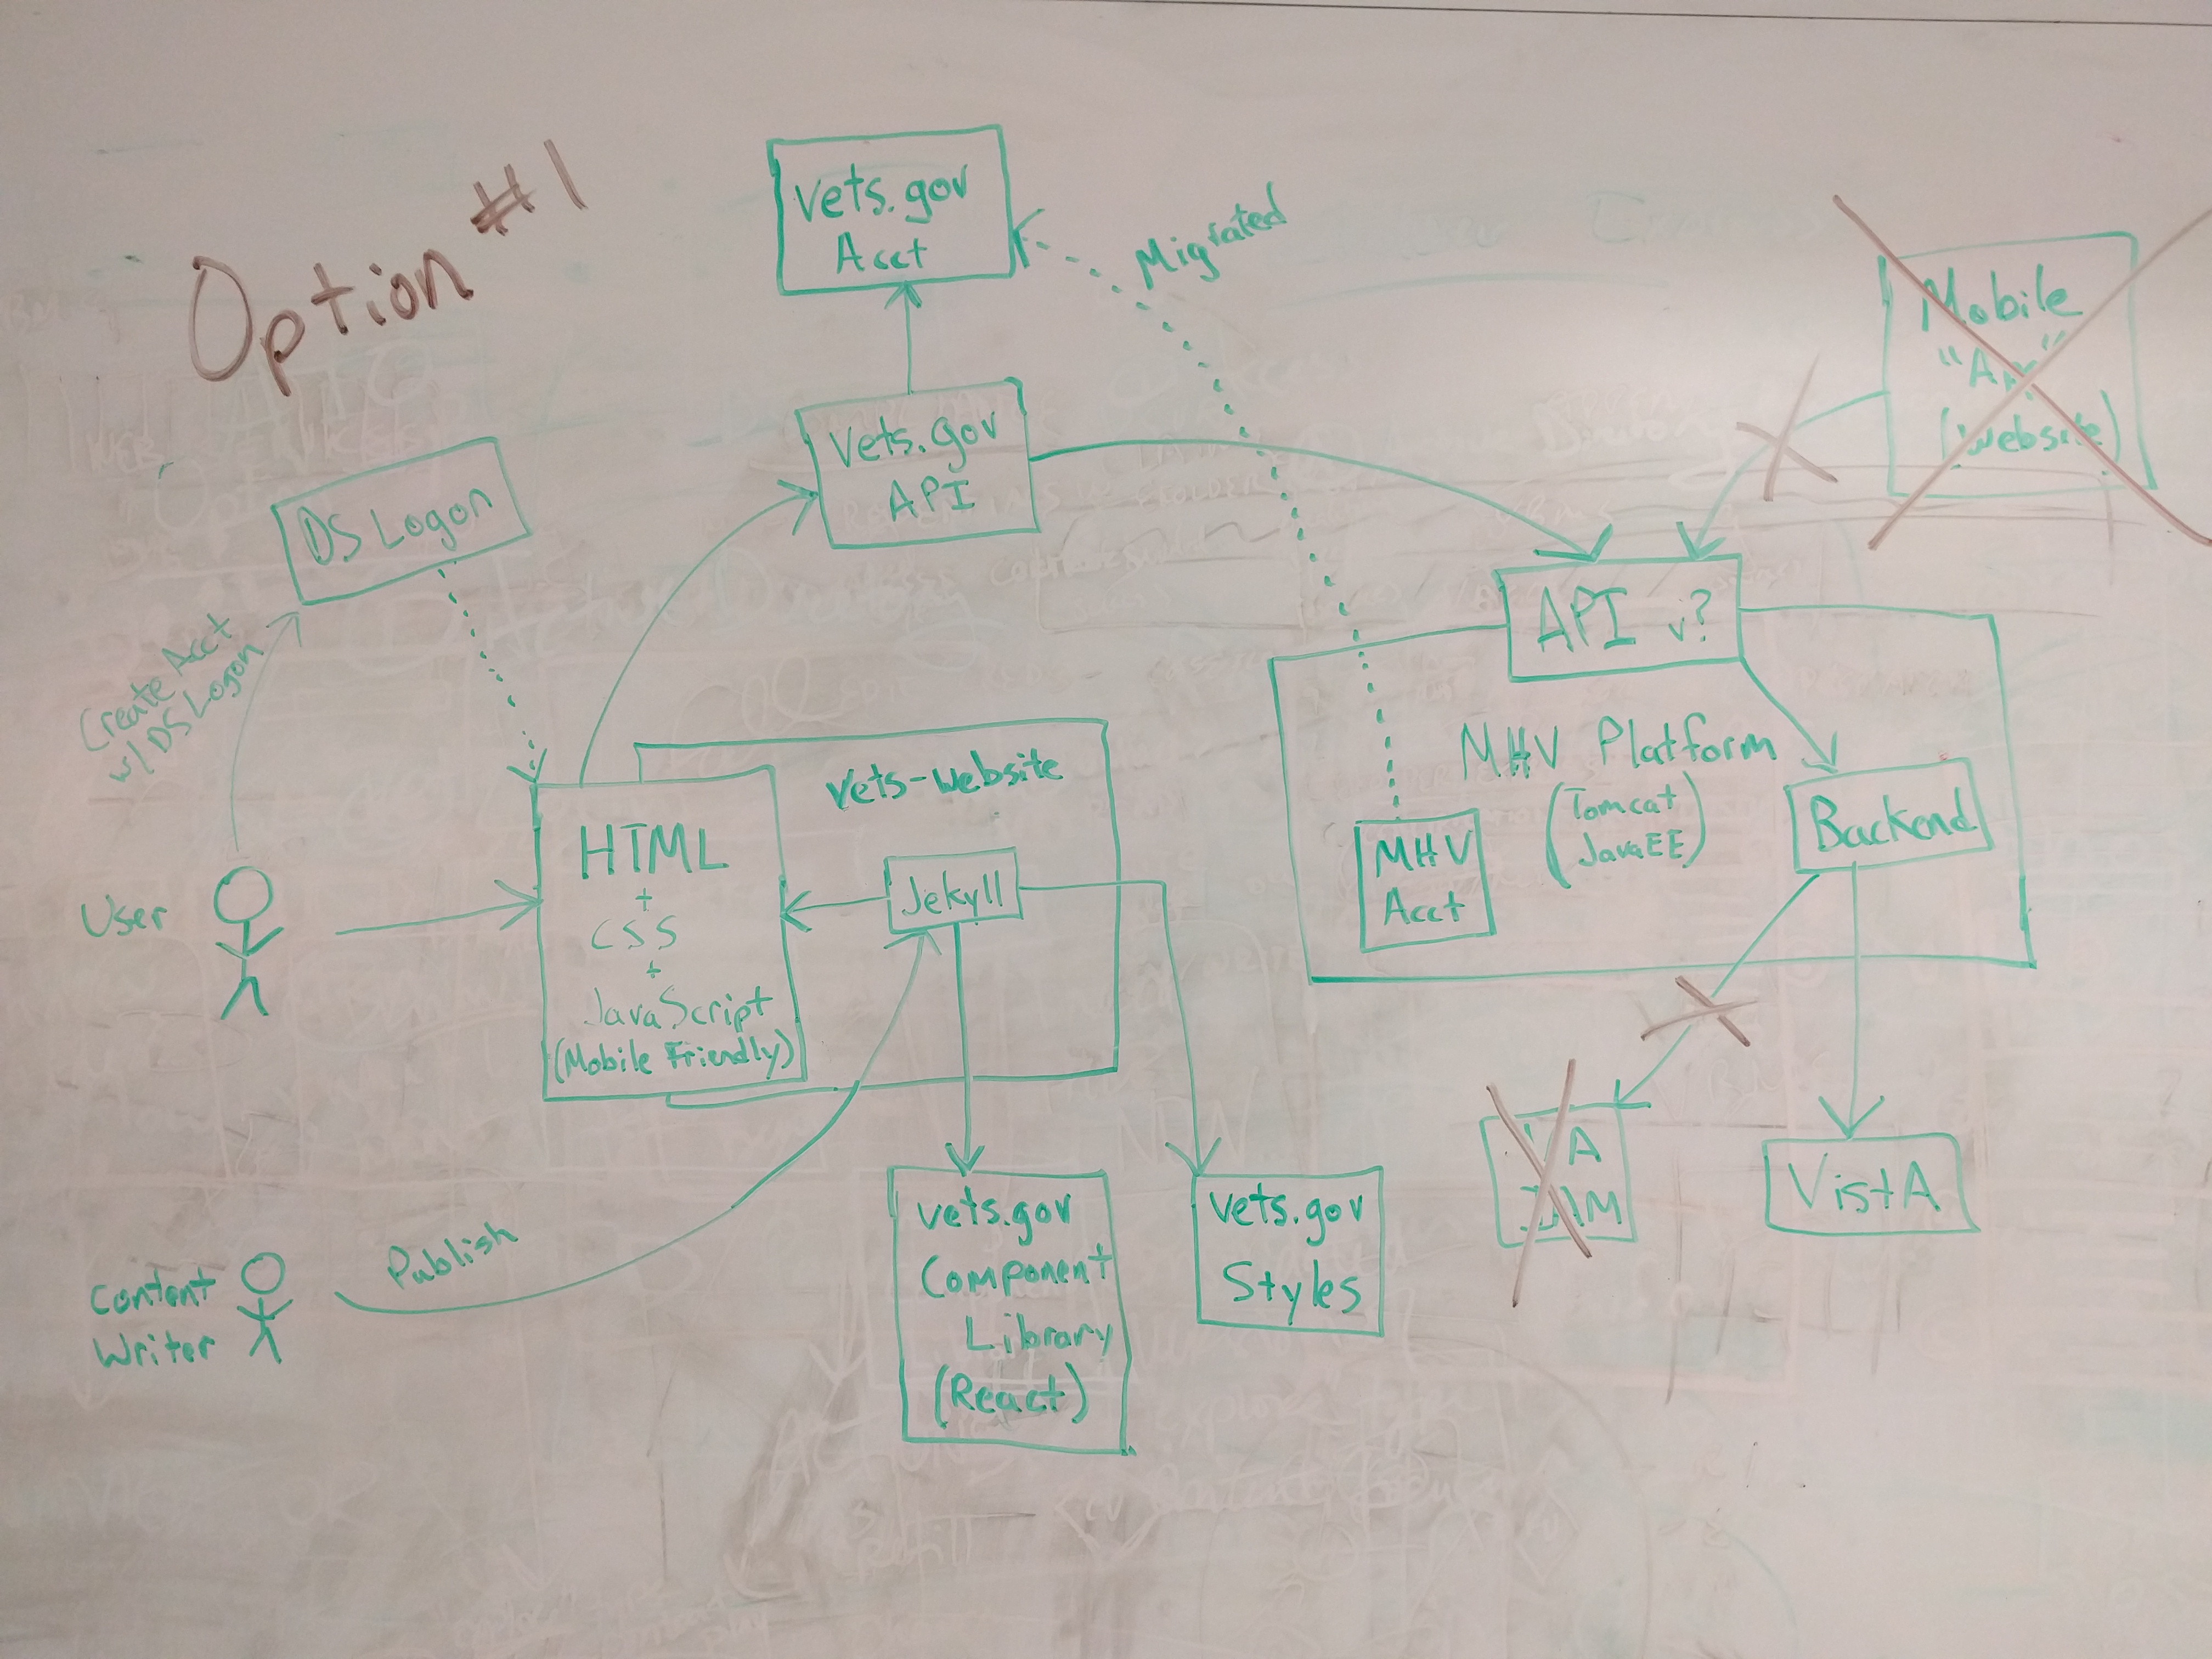 Option #1
vets.gov
Acct
Migrated
Mobile
(Website)
vets.gov
API
DS Logon
Create Acct
w/ DS Logon
API v?
MHV Platform
(Tomcat
JavaEE)
MHV
Acct
Backend
vets-website
HTML
+
CSS
+
JavaScript
(Mobile Friendly)
Jekyll
User
Publish
Content
Writer
vets.gov
Component
Library
(React)
vets.gov
Styles
VistA